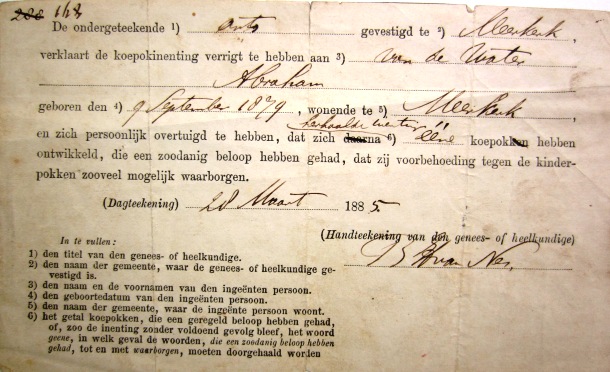 168
De ondergeteekende 1) arts gevestigd te 2) Meerkerk,
verklaart de koepokinenting verrigt te hebben aan 3) van de Water
Abraham
geboren den 4) 9 September 1879, wonende te 5) Meerkerk
herhaalde
en zich persoonlijk overtuigd te hebben, dat zich daarna 6) ééne koepokken hebben
ontwikkeld, die een zoodanig beloop hebben gehad, dat zij voorbehoeding tegen de kinder-
pokken zooveel mogelijk waarborgen.
(Dagteekening) 28 Maart 1885.
(Handteekening van den genees- of heelkundige)
van Nes.
In te vullen:
1) den titel van den genees- of heelkundige.
2) den naam der gemeente, waar de genees- of heelkundige ge-
vestigd is.
3) den naam en de voornamen van den ingeënten persoon.
4) den geboortedatum van den ingeënten persoon.
5) den naam der gemeente, waar de ingeënte persoon woont.
6) het getal koepokken, die een geregeld beloop hebben gehad,
of, zoo de inenting zonder voldoend gevolg bleef, het woord
geene, in welk geval de woorden, die een zoodanig beloop hebben
gehad, tot en met waarborgen, moeten doorgehaald worden